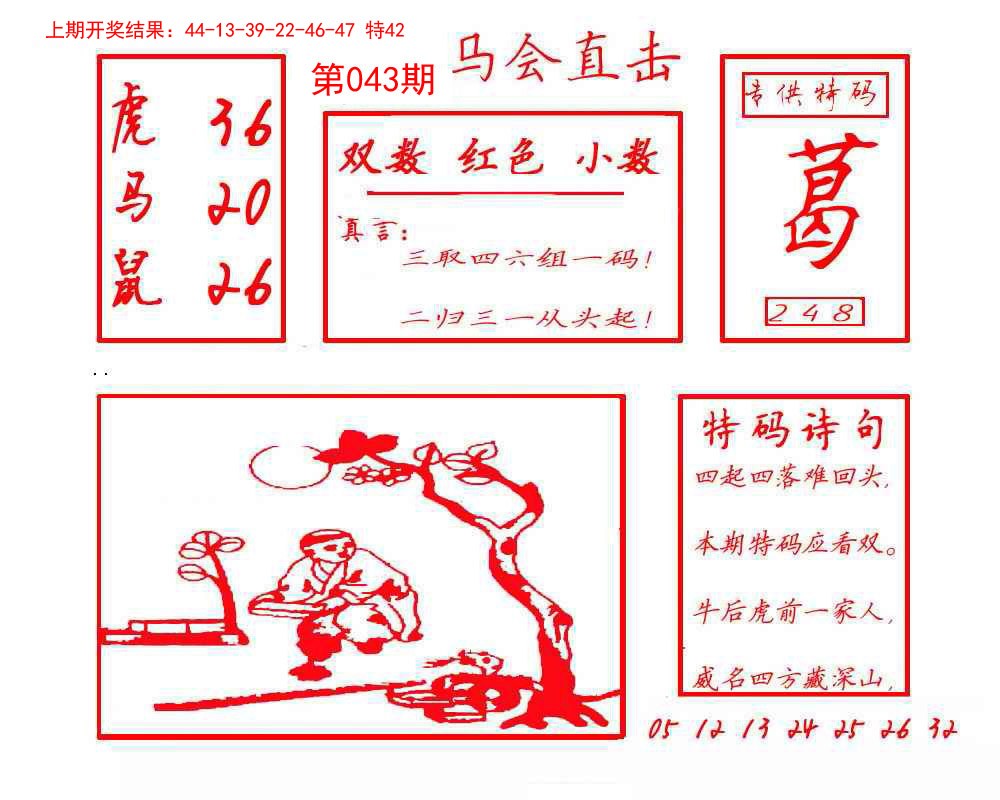 上期开奖结果：44-13-39-22-46-47 特42
马会直击
第043期
虎 36
马 20
鼠 26
双数 红色 小数
真言：
三取四六组一码！
二归三一从头起！
专供特码
葛
248
..
特码诗句
四起四落难回头，
本期特码应看双。
牛后虎前一家人，
威名四方藏深山，
05 12 13 24 25 26 32